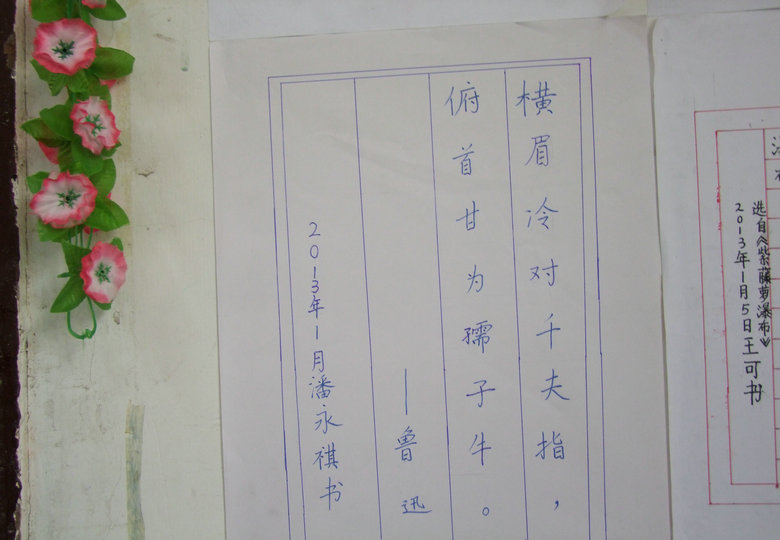 横眉冷对千夫指，
俯首甘为孺子牛。
—鲁迅
2013年1月潘永祺书
选自《紫藤萝瀑布》
2013年1月5日王可书